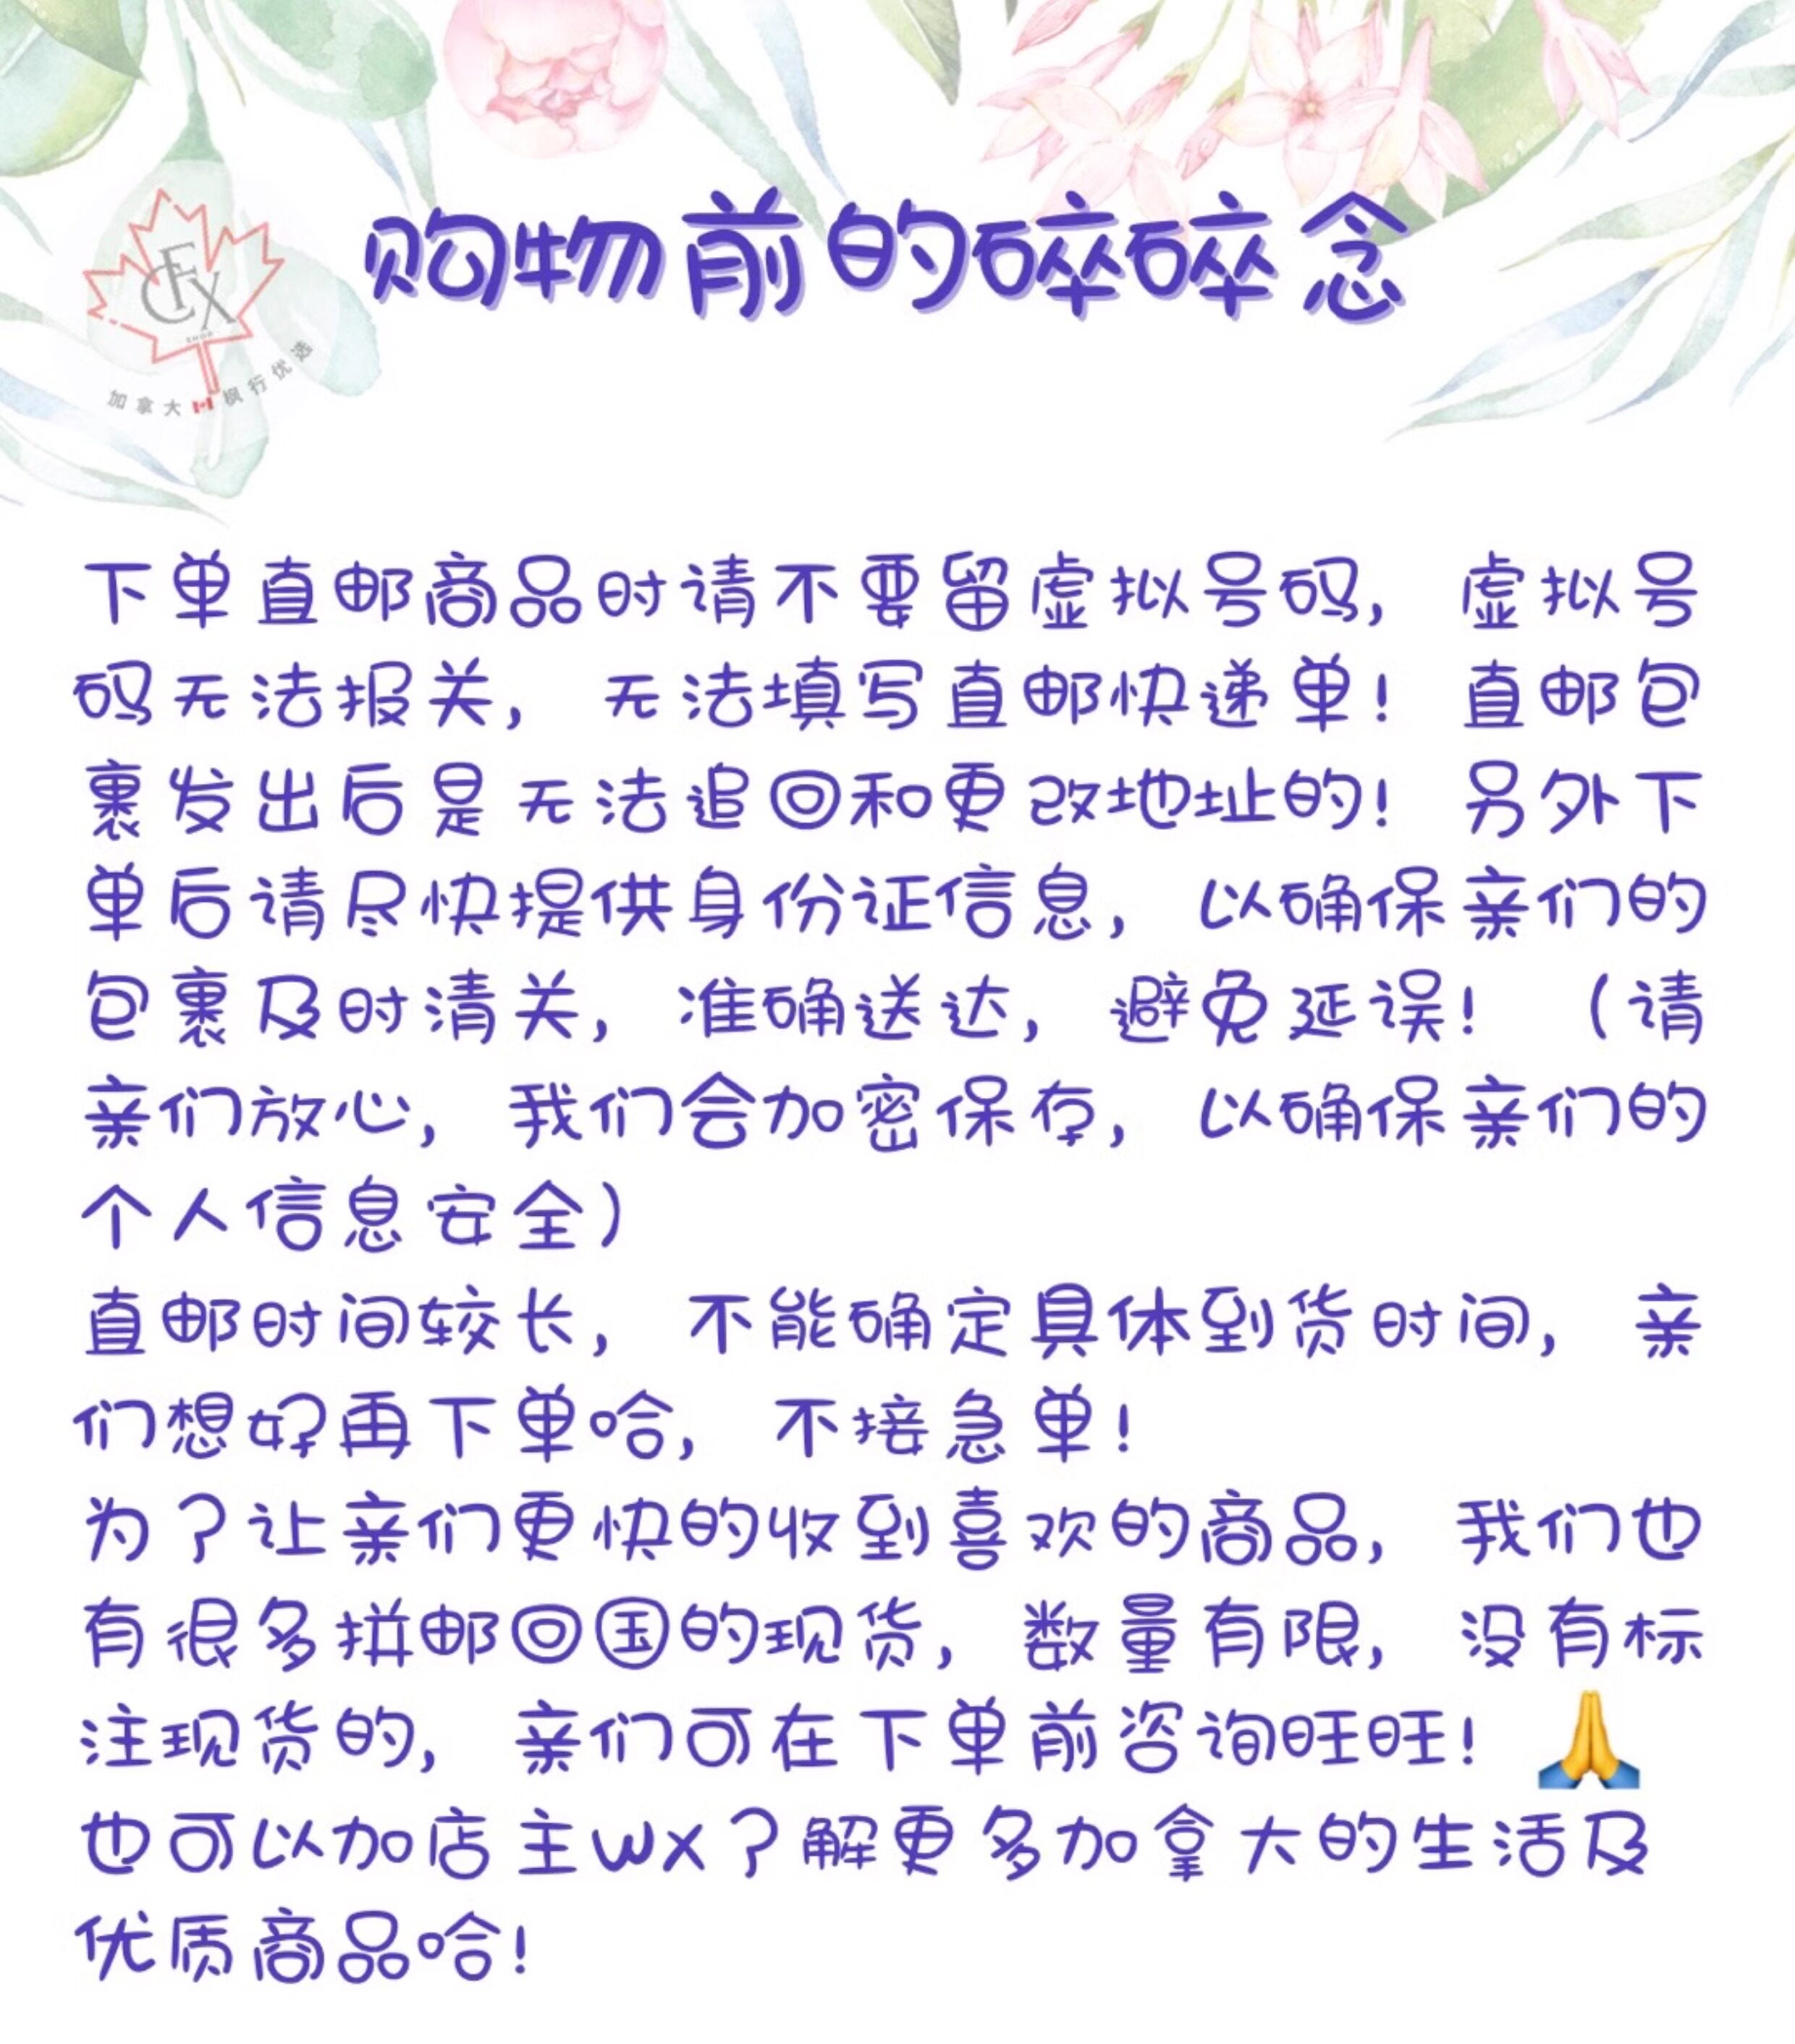 购物前的碎碎念
CFX
SHOP
加拿大🇨🇦枫行优选
下单直邮商品时请不要留虚拟号码，虚拟号
码无法报关，无法填写直邮快递单！直邮包
裹发出后是无法追回和更改地址的！另外下
单后请尽快提供身份证信息，以确保亲们的
包裹及时清关，准确送达，避免延误！（请
亲们放心，我们会加密保存，以确保亲们的
个人信息安全）
直邮时间较长，不能确定具体到货时间，亲
们想好再下单哈，不接急单！
为了让亲们更快的收到喜欢的商品，我们也
有很多拼邮回国的现货，数量有限，没有标
注现货的，亲们可在下单前咨询旺旺！🙏
也可以加店主wx了解更多加拿大的生活及
优质商品哈！